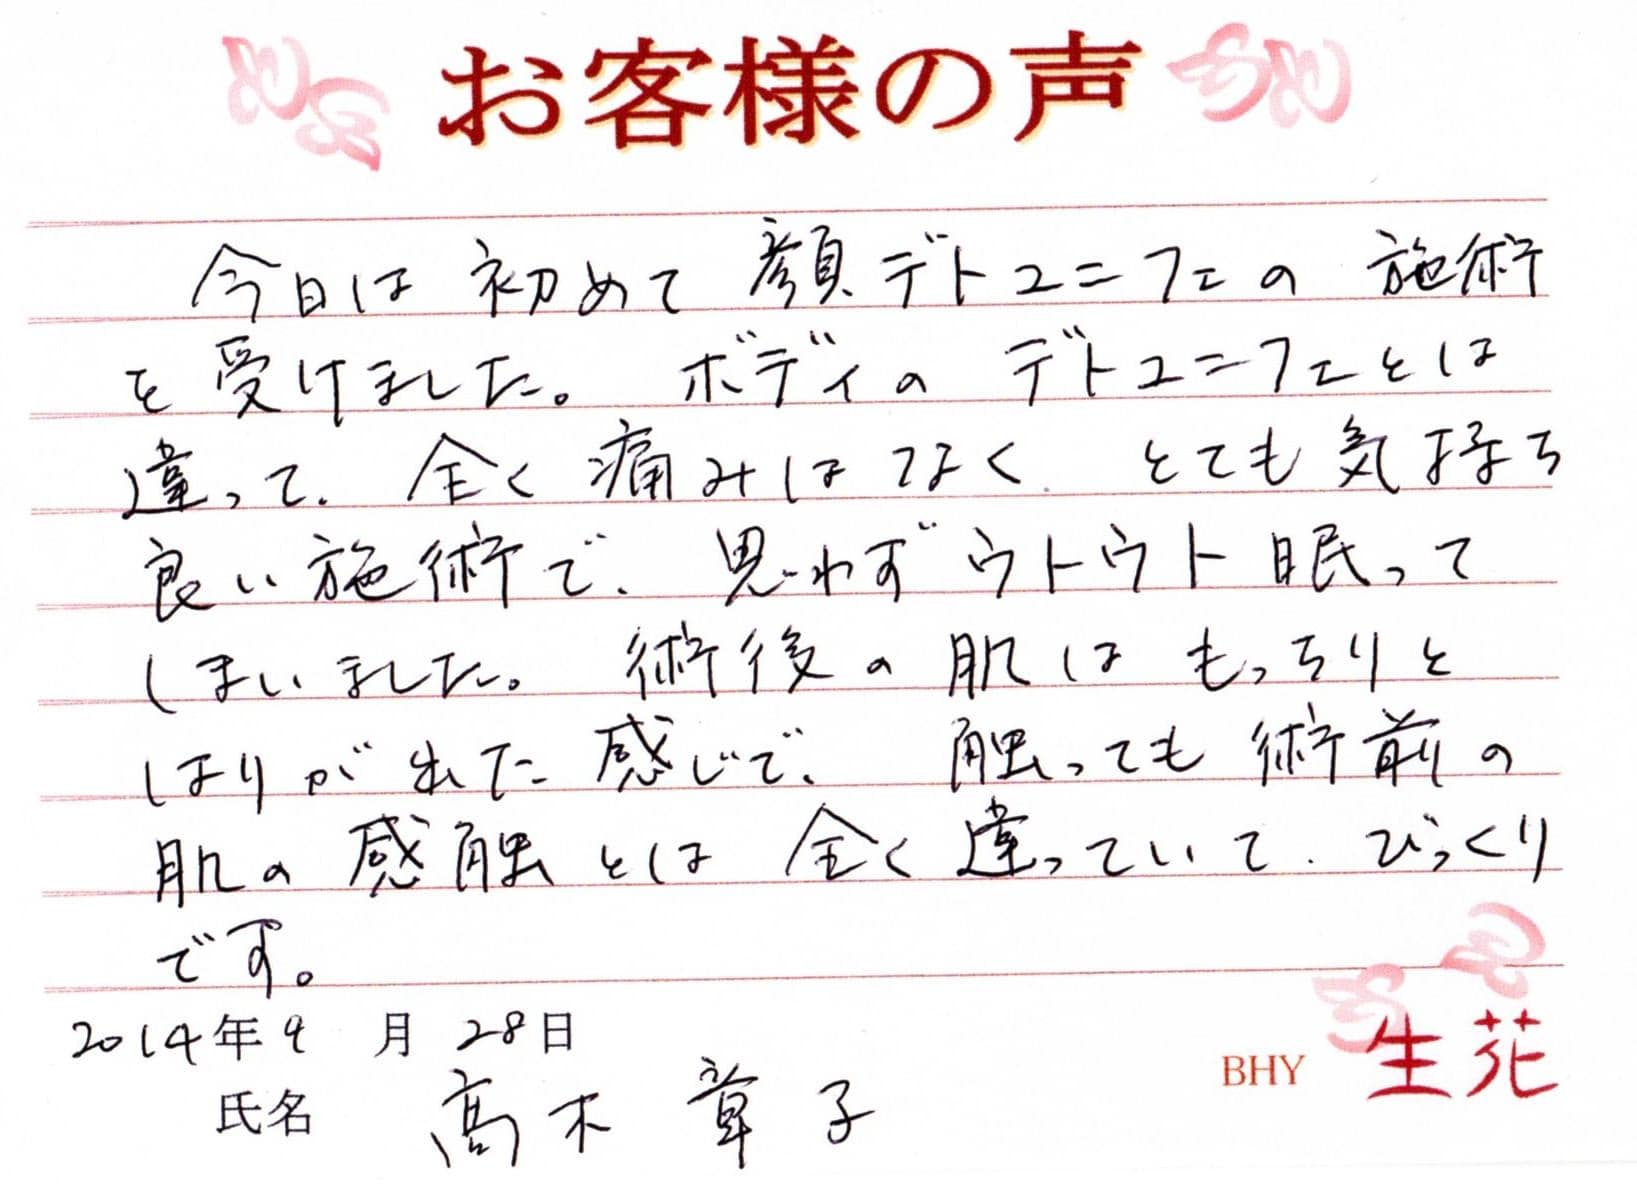 お客様の声
今日は初めて顔デトユニフェの施術
を受けました。ボディのデトユニフェとは
違って、全く痛みはなく、とても気持ち
良い施術で、思わずウトウト眠って
しまいました。術後の肌はもっちりと
はりが出た感じで、触っても術前の
肌の感触とは全く違っていて、びっくり
です。
2014年9月28日
氏名 髙木 章子
BHY 生花